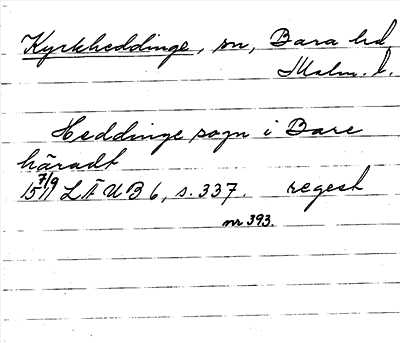 Kyrkheddinge, sn, Bara hd
Malm. l.
Heddinge sogn i Bare
häradt
15 7/9 11 LÄUB 6, s. 337. regest
nr 393.